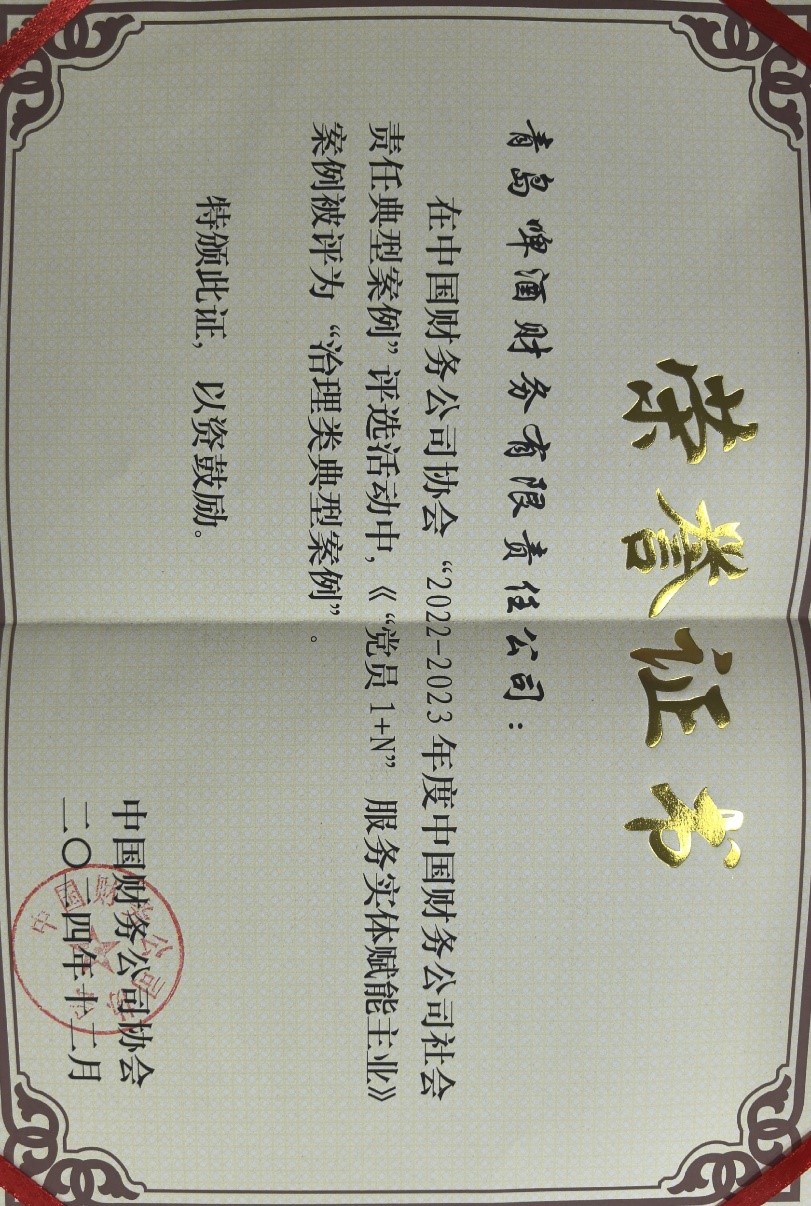 荣誉证书
青岛啤酒财务有限责任公司：
在中国财务公司协会“2022-2023年度中国财务公司社会
责任典型案例”评选活动中，《“党员1+N”服务实体赋能主业》
案例被评为“治理类典型案例”。
特颁此证，以资鼓励。
中国财务公司协会
二〇二四年十二月
中国财务公司协会